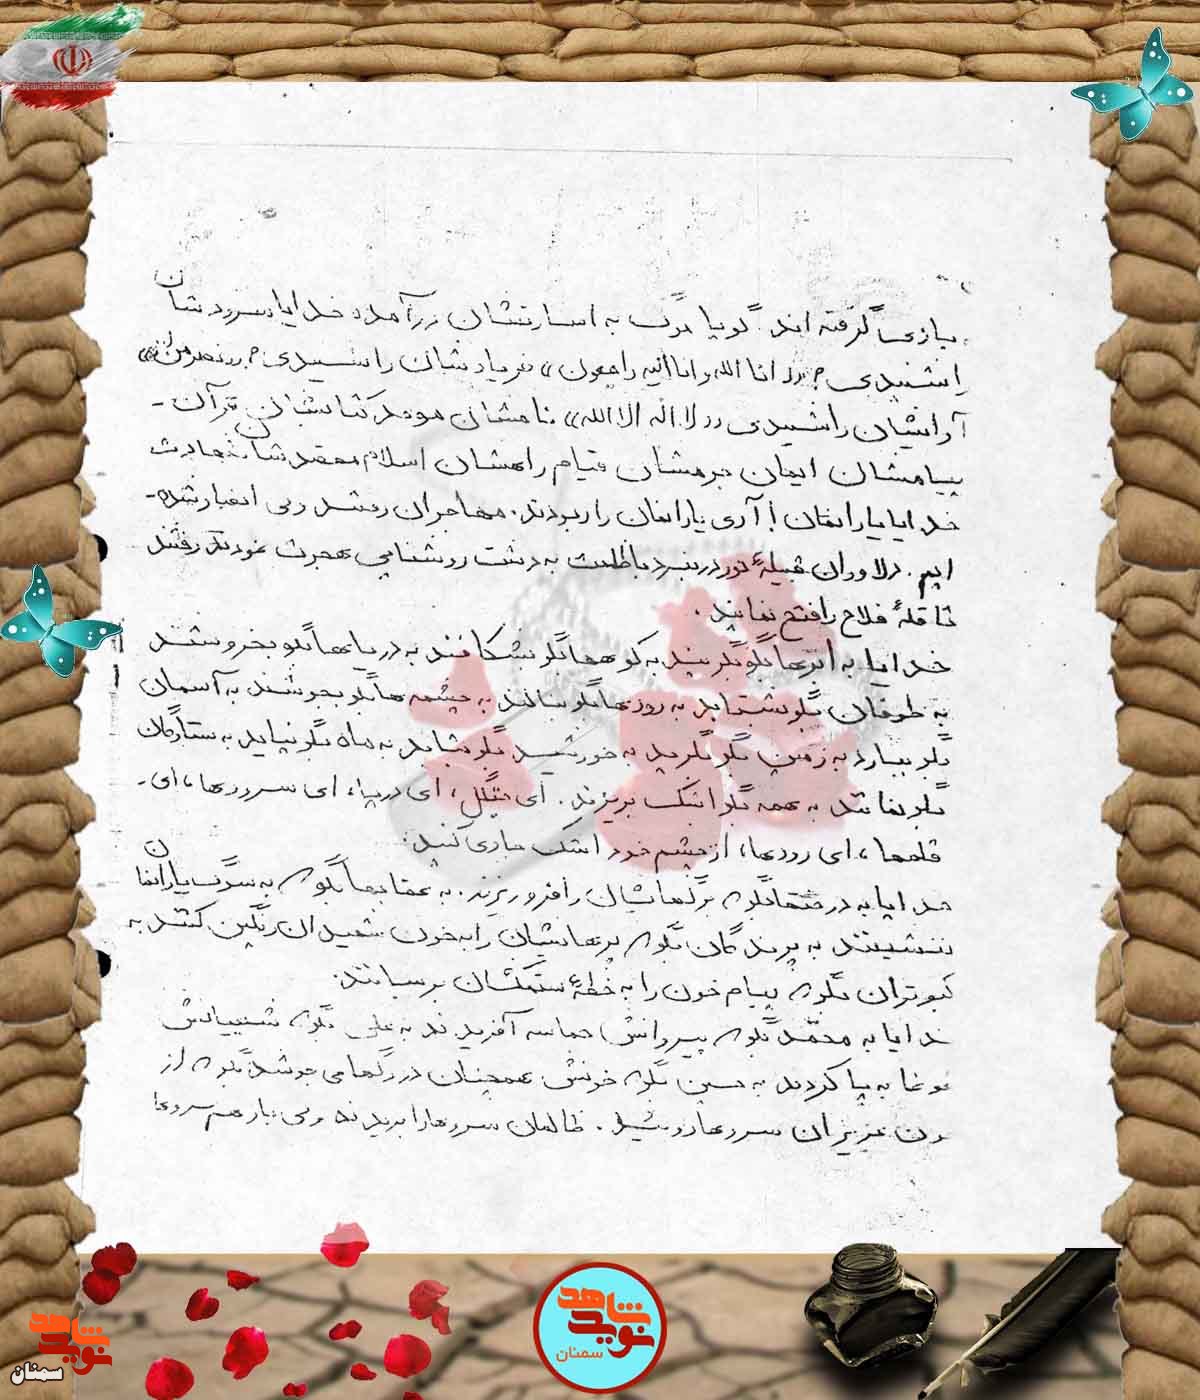 ببازی گرفته اند. گویا مرگ به اسارتشان درآمده خدایا سرودشان
را شنیدی؟ «انا لله و انا الیه راجعون» فریادشان را شنیدی؟ «نصر من الله»
آوایشان را شنیدی «لا اله الا الله» نامشان موحد کتابشان قرآن -
پیامشان ایمان جرمشان قیام راهشان اسلام مقصدشان شهادت
خدایا یارانمان! آری یارانمان را ربودند. مهاجران رفتند ولی انصار شده -
ایم. دلاوران قبیلهٔ نور در نبرد با ظلمت به دشت روشنایی هجرت نمودند رفتند
تا قلهٔ فلاح را فتح نمایند.
خدایا به ابرها بگو بگریند به کوهها بگو بشکافند به دریاها بگو بخروشند
به طوفان بگو بشتابد به روزها بگو بنالند به چشمه ها بگو بجوشند به آسمان
بگو ببارد به زمین بگو بگرید به خورشید بگو نتابد به ماه بگو نیاید به ستارگان
بگو نمانند به همه بگو اشک بریزند. ای جنگل، ای دریا، ای سرودها، ای -
قلمها، ای رودها، از چشم خود اشک جاری کنید.
خدایا به درختها بگو برگهایشان را فرو ریزند. به عقابها بگو به سوگ یارانمان
بنشینند به پرندگان بگو پرهایشان را به خون شهیدان رنگین کنند به
کبوتران بگو پیام خون را به خطهٔ ستمکشان برسانند.
خدایا به محمد بگو پیروانش حماسه آفریدند به علی بگو شیعیانش
غوغا به پا کردند به حسین بگو خونش همچنان در رگها می جوشد بگو از
خون عزیزان سروها روئید. ظالمان سروها را بریدند ولی باز هم سروها
نوید شاهد
سمنان
نوید شاهد
سمنان